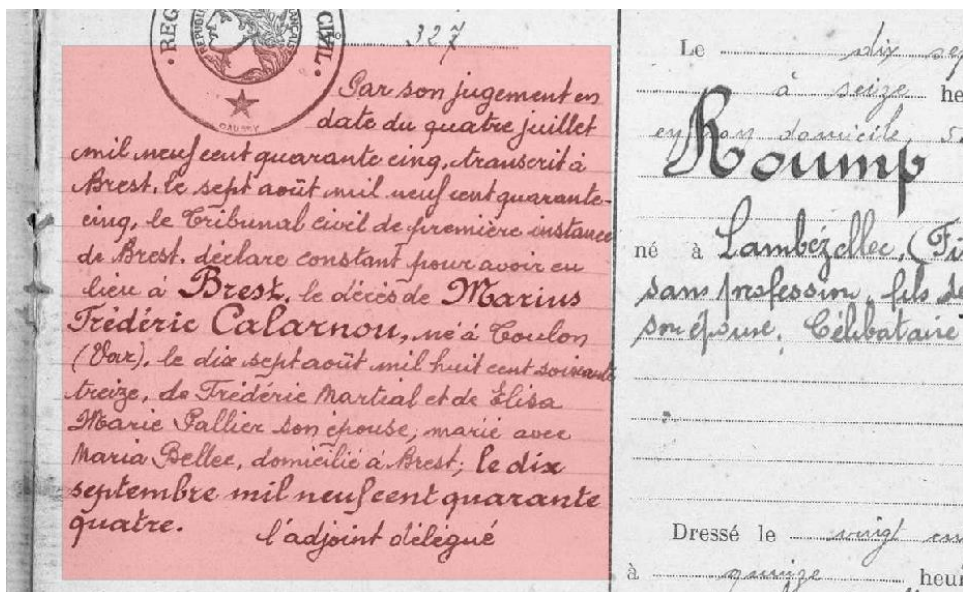 327
Par son jugement en
date du quatre juillet
mil neuf cent quarante cinq, transcrit à
Brest, le sept août mil neuf cent quarante-
cinq, le Tribunal civil de première instance
de Brest, déclare constant pour avoir eu
lieu à Brest, le décès de Marius
Frédéric Calarnou, né à Toulon
(Var), le dix sept août mil huit cent soixante
treize, de Frédéric Martial et de Élisa
Marie Pallier son épouse, marié avec
Maria Bellec, domicilié à Brest; le dix
septembre mil neuf cent quarante
quatre.
l'adjoint délégué
Le dix
à seize
en son domicile
Roump
né à Lambézellec, (Fi
sans profession, fils de
son épouse. Célibataire
Dressé le vingt
à quinze heur